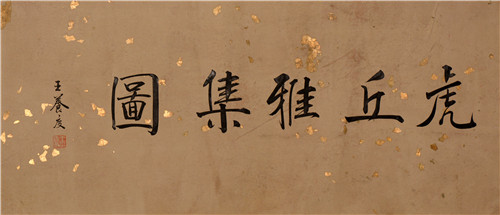 虎丘雅集圖
王養度